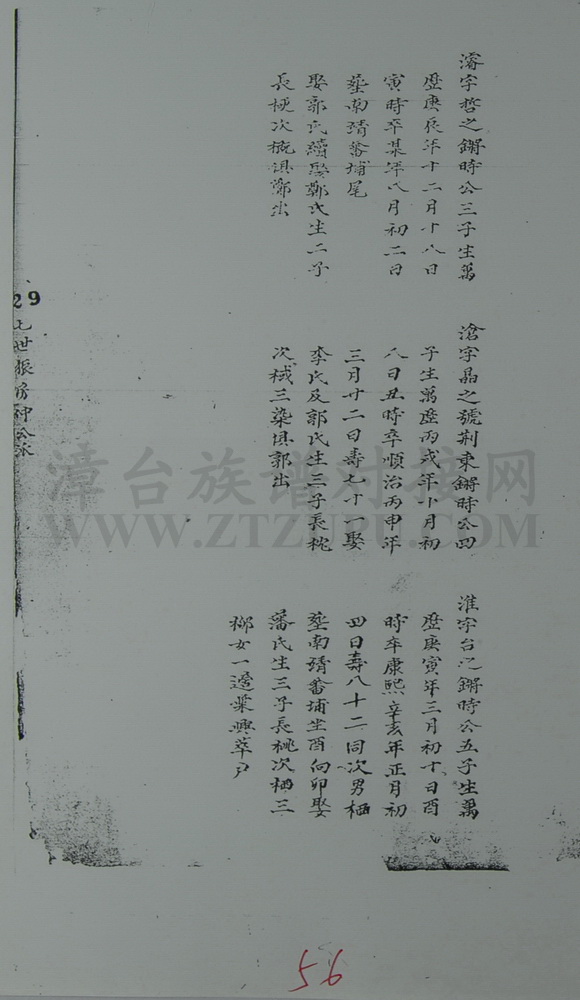 濬字哲之鏘時公三子生萬
歷庚辰年十二月十八日
寅時卒某年八月初二日
塟南靖番埔尾
娶郭氏續娶鄭氏生二子
長梗次概俱鄭出
滄字晶之號荆東鏘時公四
子生萬歷丙戌年十月初
八日丑時卒順治丙申年
三月廿二日壽七十一娶
李氏及郭氏生三子長桄
次棫三染俱郭出
淮字台之鏘時公五子生萬
歷庚寅年三月初十日酉
時卒康熙辛亥年正月初
四日壽八十二同次男栖
塟南靖番埔坐酉向卯娶
潘氏生三子長桃次栖三
柳女一適葉興莘户
29
七世振房
漳台族谱对接网
WWW.ZTZUPU.COM
56